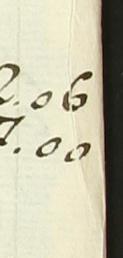 2.06
7.00